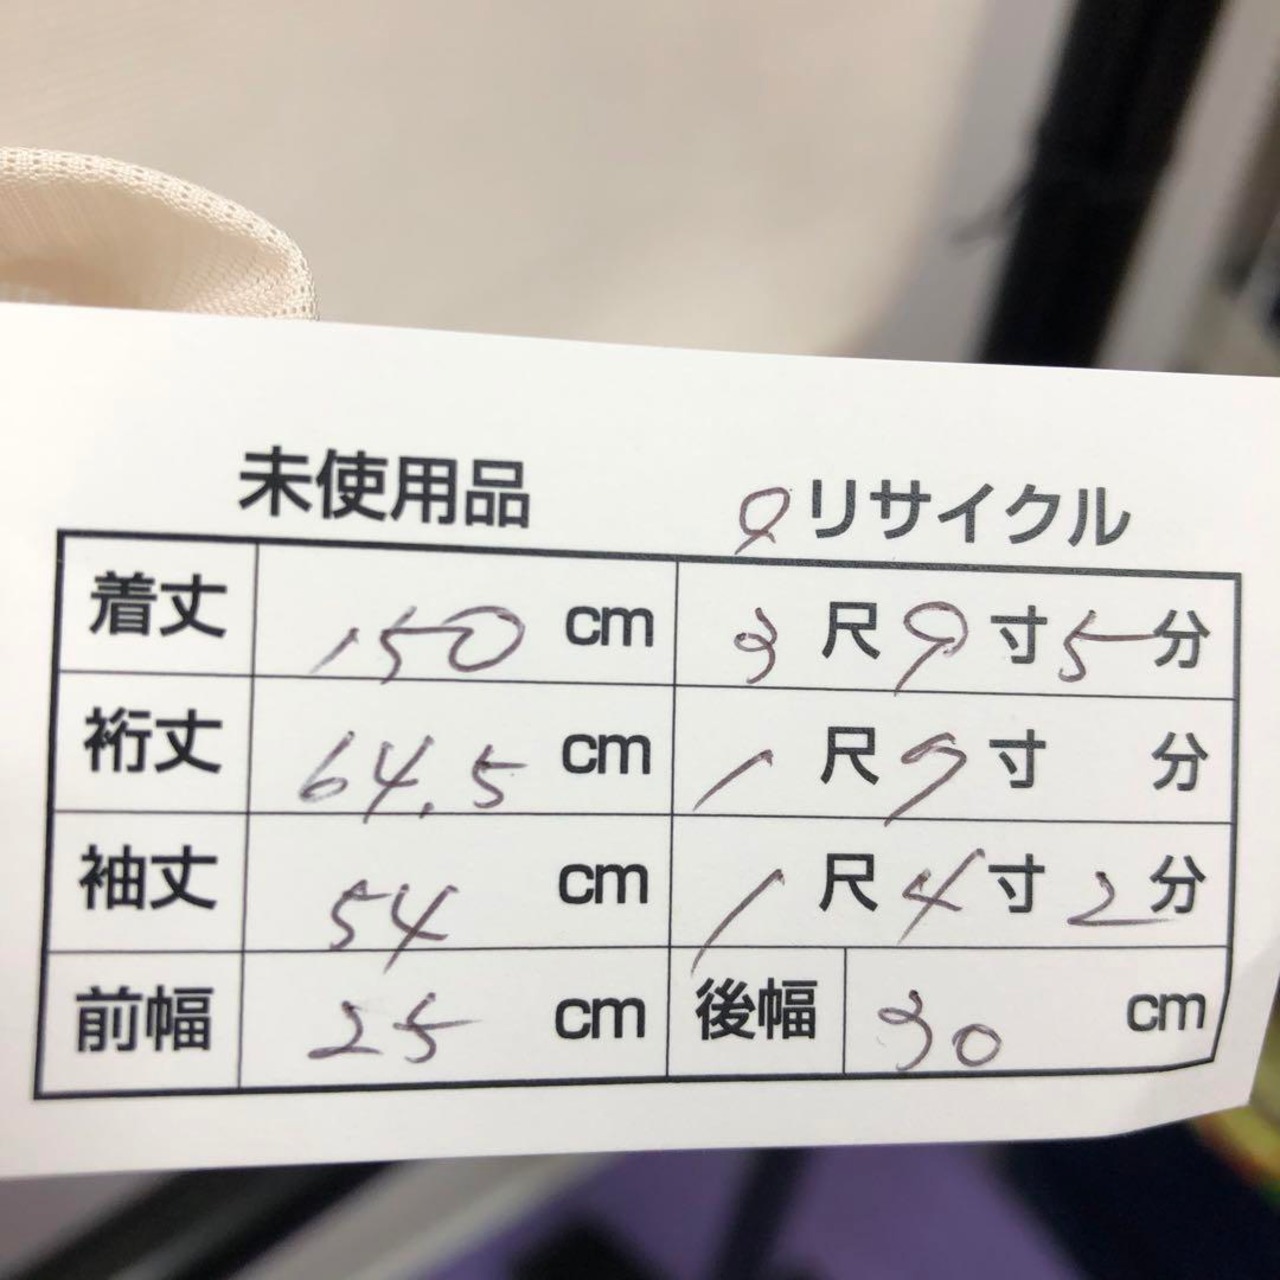 未使用品 リサイクル
着丈 150 cm 3 尺 9 寸 5 分
裄丈 64.5 cm 1 尺 7 寸 分
袖丈 54 cm 1 尺 4 寸 2 分
前幅 25 cm 後幅 30 cm